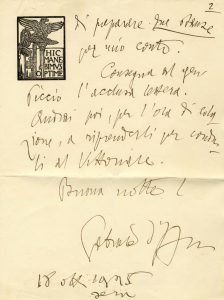 2
HIC
MANE
BIMVS
OPTIME
di preparare due stanze
per mio conto.
Consegna al gen
Piccio l'acclusa lettera.
Andrai poi, per l'ora di cola
zione, a riprenderli per condur
li al Vittoriale.
Buona notte!
Gabriele d'Ann
18 ott. 1925
sera